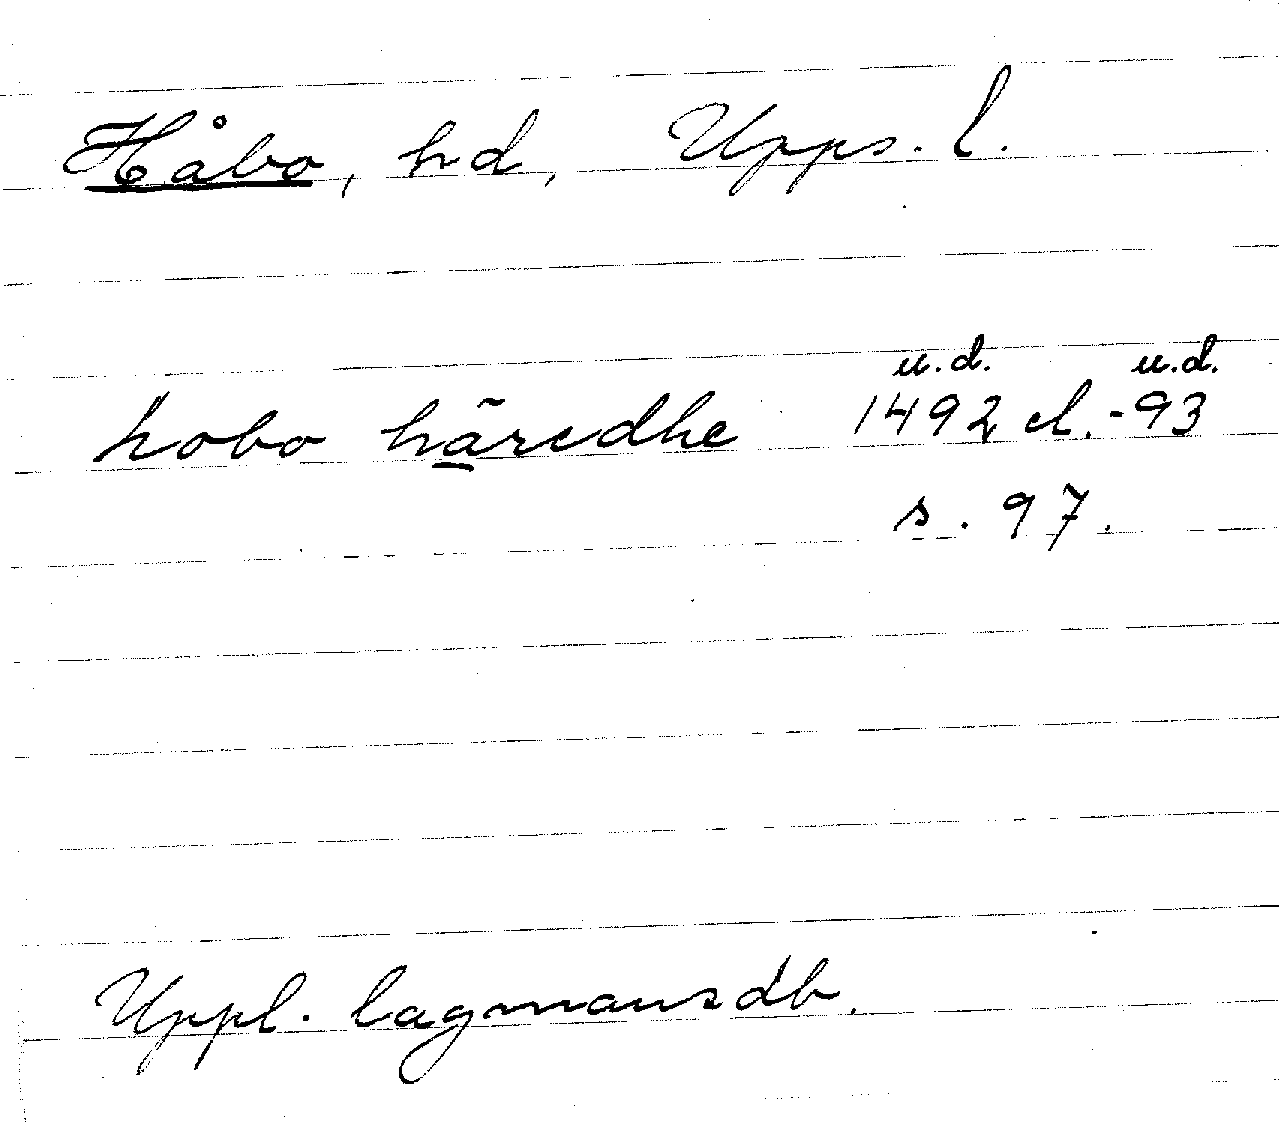 Håbo, hd, Upps. l.
u.d. u.d.
hobo hãredhe 1492 el. -93
s. 97.
Uppl. lagmansdb.